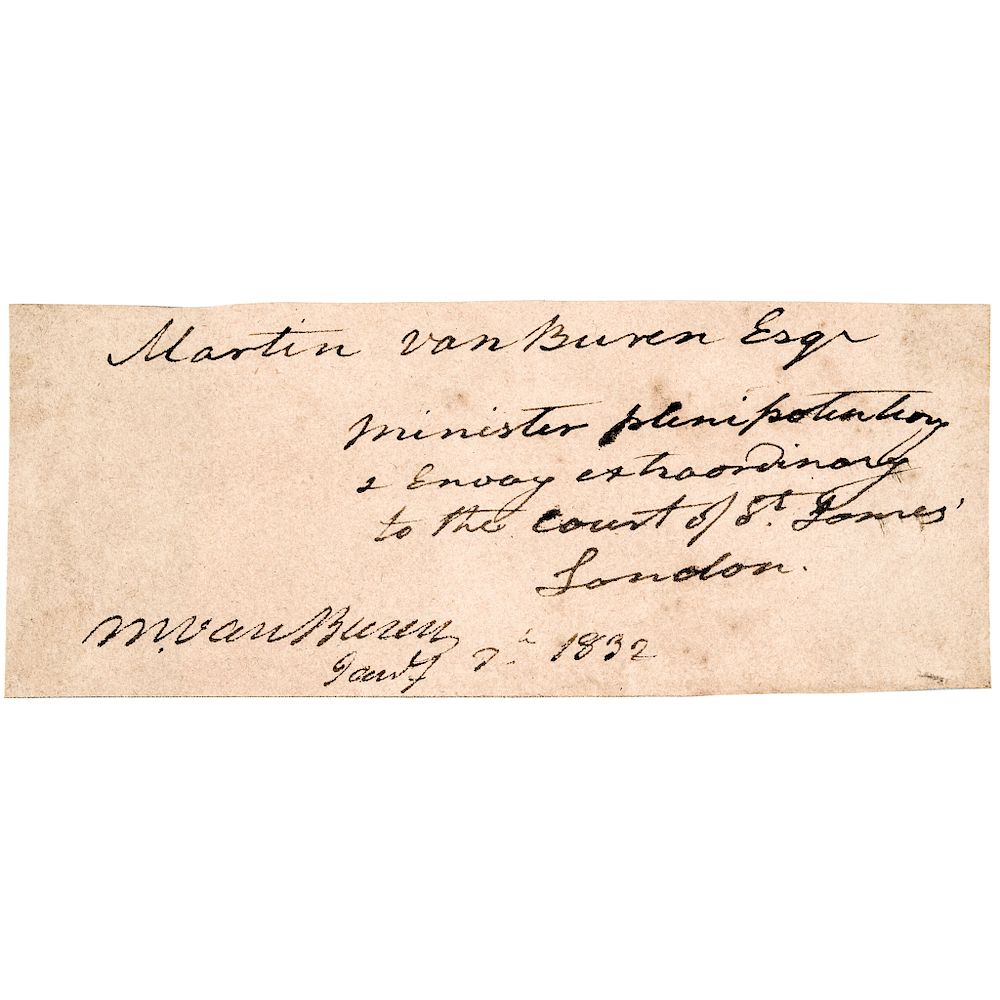 Martin Van Buren Esqr
Minister plenipotentiary
& Envoy extraordinary
to the Court of St. James'
London.
M. Van Buren
Jany 7th 1832